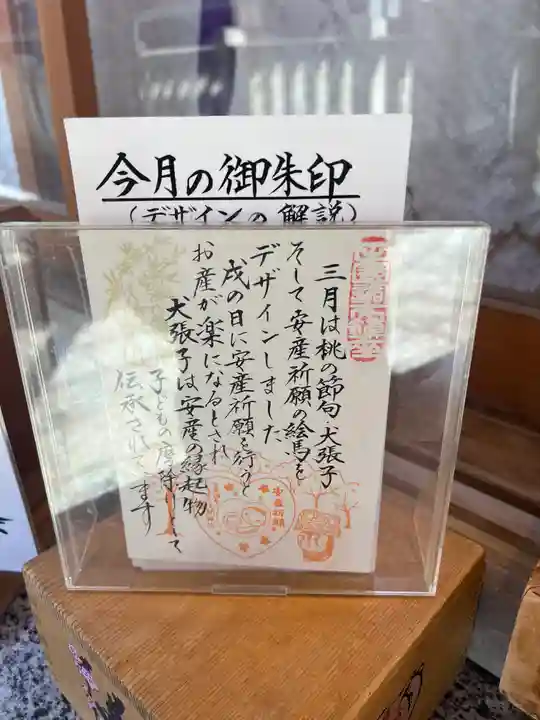 今月の御朱印
(デザインの解説)
三月は桃の節句・犬張子
そして安産祈願の絵馬を
デザインしました
戌の日に安産祈願を行うと
お産が楽になるとされ
犬張子は安産の縁起物
子どもの魔除として
伝承されています
安産祈願